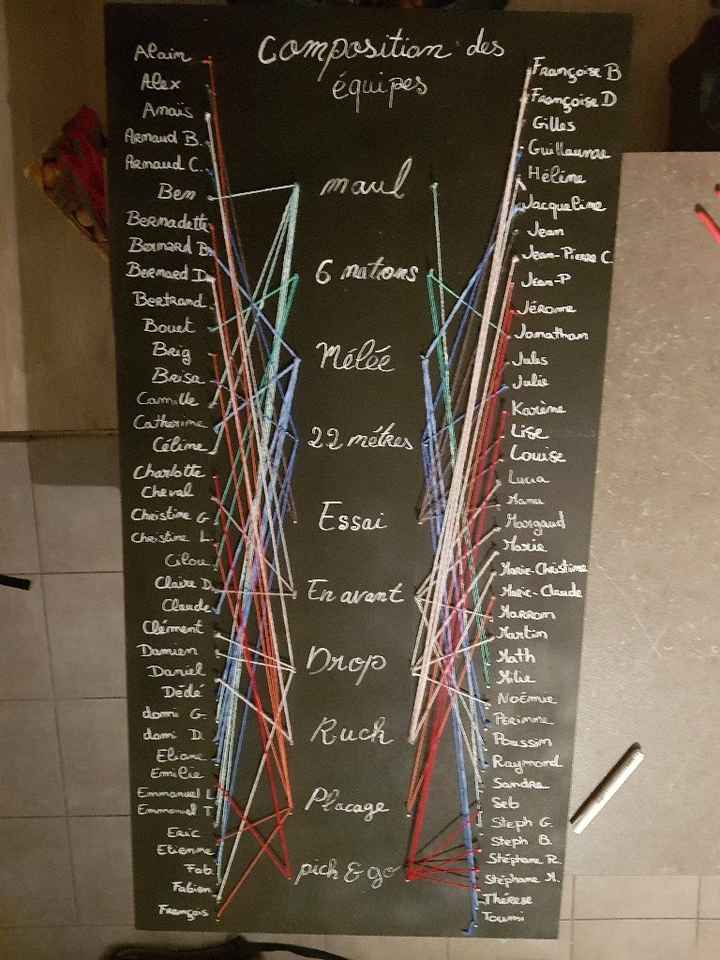 Composition des
équipes
Alain
Alex
Anaïs
Arnaud B.
Arnaud C.
Ben
Bernadette
Bernard B.
Bernard D.
Bertrand
Bouet
Brig
Brisa
Camille
Catherine
Céline
Charlotte
Cheval
Christine G
Christine L.
Cilou
Claire D.
Claude
Clément
Damien
Daniel
Dédé
domi G.
domi D.
Eliane
Emilie
Emmanuel L
Emmanuel T
Eric
Etienne
Fab
Fabien
François
maul
6 nations
Mêlée
22 mètres
Essai
En avant
Drop
Ruch
Placage
pick & go
Françoise B
Françoise D
Gilles
Guillaume
Hélène
Jacqueline
Jean
Jean-Pierre C.
Jean-P
Jérome
Jonathan
Jules
Julie
Karème
Lise
Louise
Lucia
Manu
Margaud
Marie
Marie-Christine
Marie-Claude
Marrom
Martin
Math
Milie
Noémie
Périnne
Poussin
Raymond
Sandra
Seb
Steph G.
Steph B.
Stéphane R.
Stéphane M.
Thérèse
Toumi